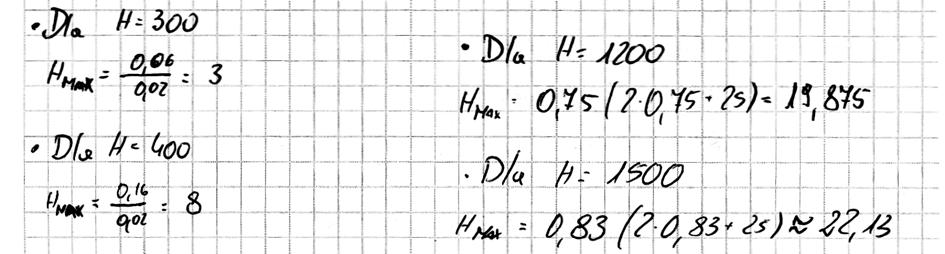 • Dla H = 300
H_MAX = 0,06/0,02 = 3
• Dla H = 400
H_MAX = 0,16/0,02 = 8
• Dla H = 1200
H_MAX = 0,75 (2·0,75 + 25) = 19,875
• Dla H = 1500
H_MAX = 0,83 (2·0,83 + 25) ≈ 22,13